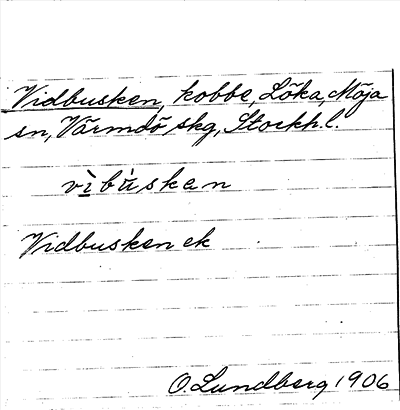 Vidbusken, kobbe, Löka, Möja
sn, Värmdö skg, Stockh. l.
vìbùskan
Vidbusken ek
O Lundberg 1906